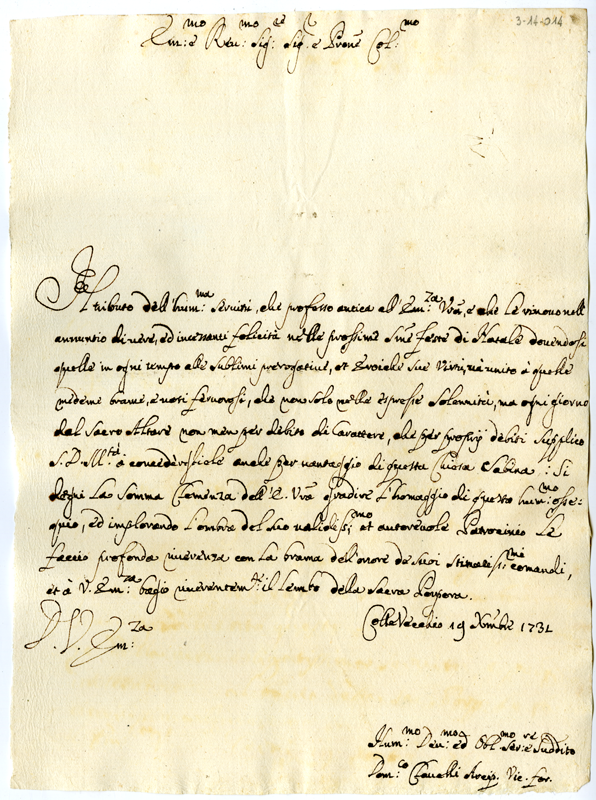 3-14-014
Em:mo e Reu:mo Sig:re Sig:re e Prone Col:mo
Il tributo dell'hum:ma Seruitù, che professo antica all'Em:za Vra, e che Le rinuouo nell'
annuntio di uere, ed incessanti felicità nelle prossime Sme feste di Natale douendosi
quelle in ogni tempo alle sublimi prerogatiue, et Eroiche sue Virtù, uà unito à quelle
medeme brame, e uoti feruorosi, che non solo nelle espresse Solennità, ma ogni giorno
dal Sacro Altare non men per debito di Carattere, che per proprij debiti supplico
S. D. M:tà a concedergliele anche per uantaggio di questa Chiesa Sabina: Si
degni La somma Clemenza dell'E. Vra gradire l'homaggio di questo hum:mo osse-
quio, ed implorando l'ombra del suo ualidiss:mo et autoreuole Patrocinio Le
faccio profonda riuerenza con La brama dell'onore de suoi stimatiss:mi comandi,
et à V. Em:za bagio riuerentem:te il Lembo della Sacra Porpora.
D. V. Em:za
Colleuecchio 19 Xmbre 1731
Hum:mo Deu:mo ed Obl:mo Ser:re e Suddito
Dom:co Arcip. Vic. for.